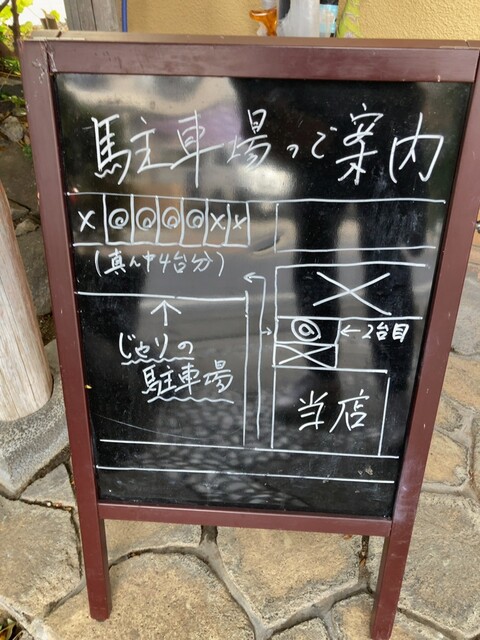 駐車場のご案内
× ◎ ◎ ◎ ◎ × ×
(真ん中4台分)
↑
じゃりの
駐車場
×
◎ ←2台目
×
当店